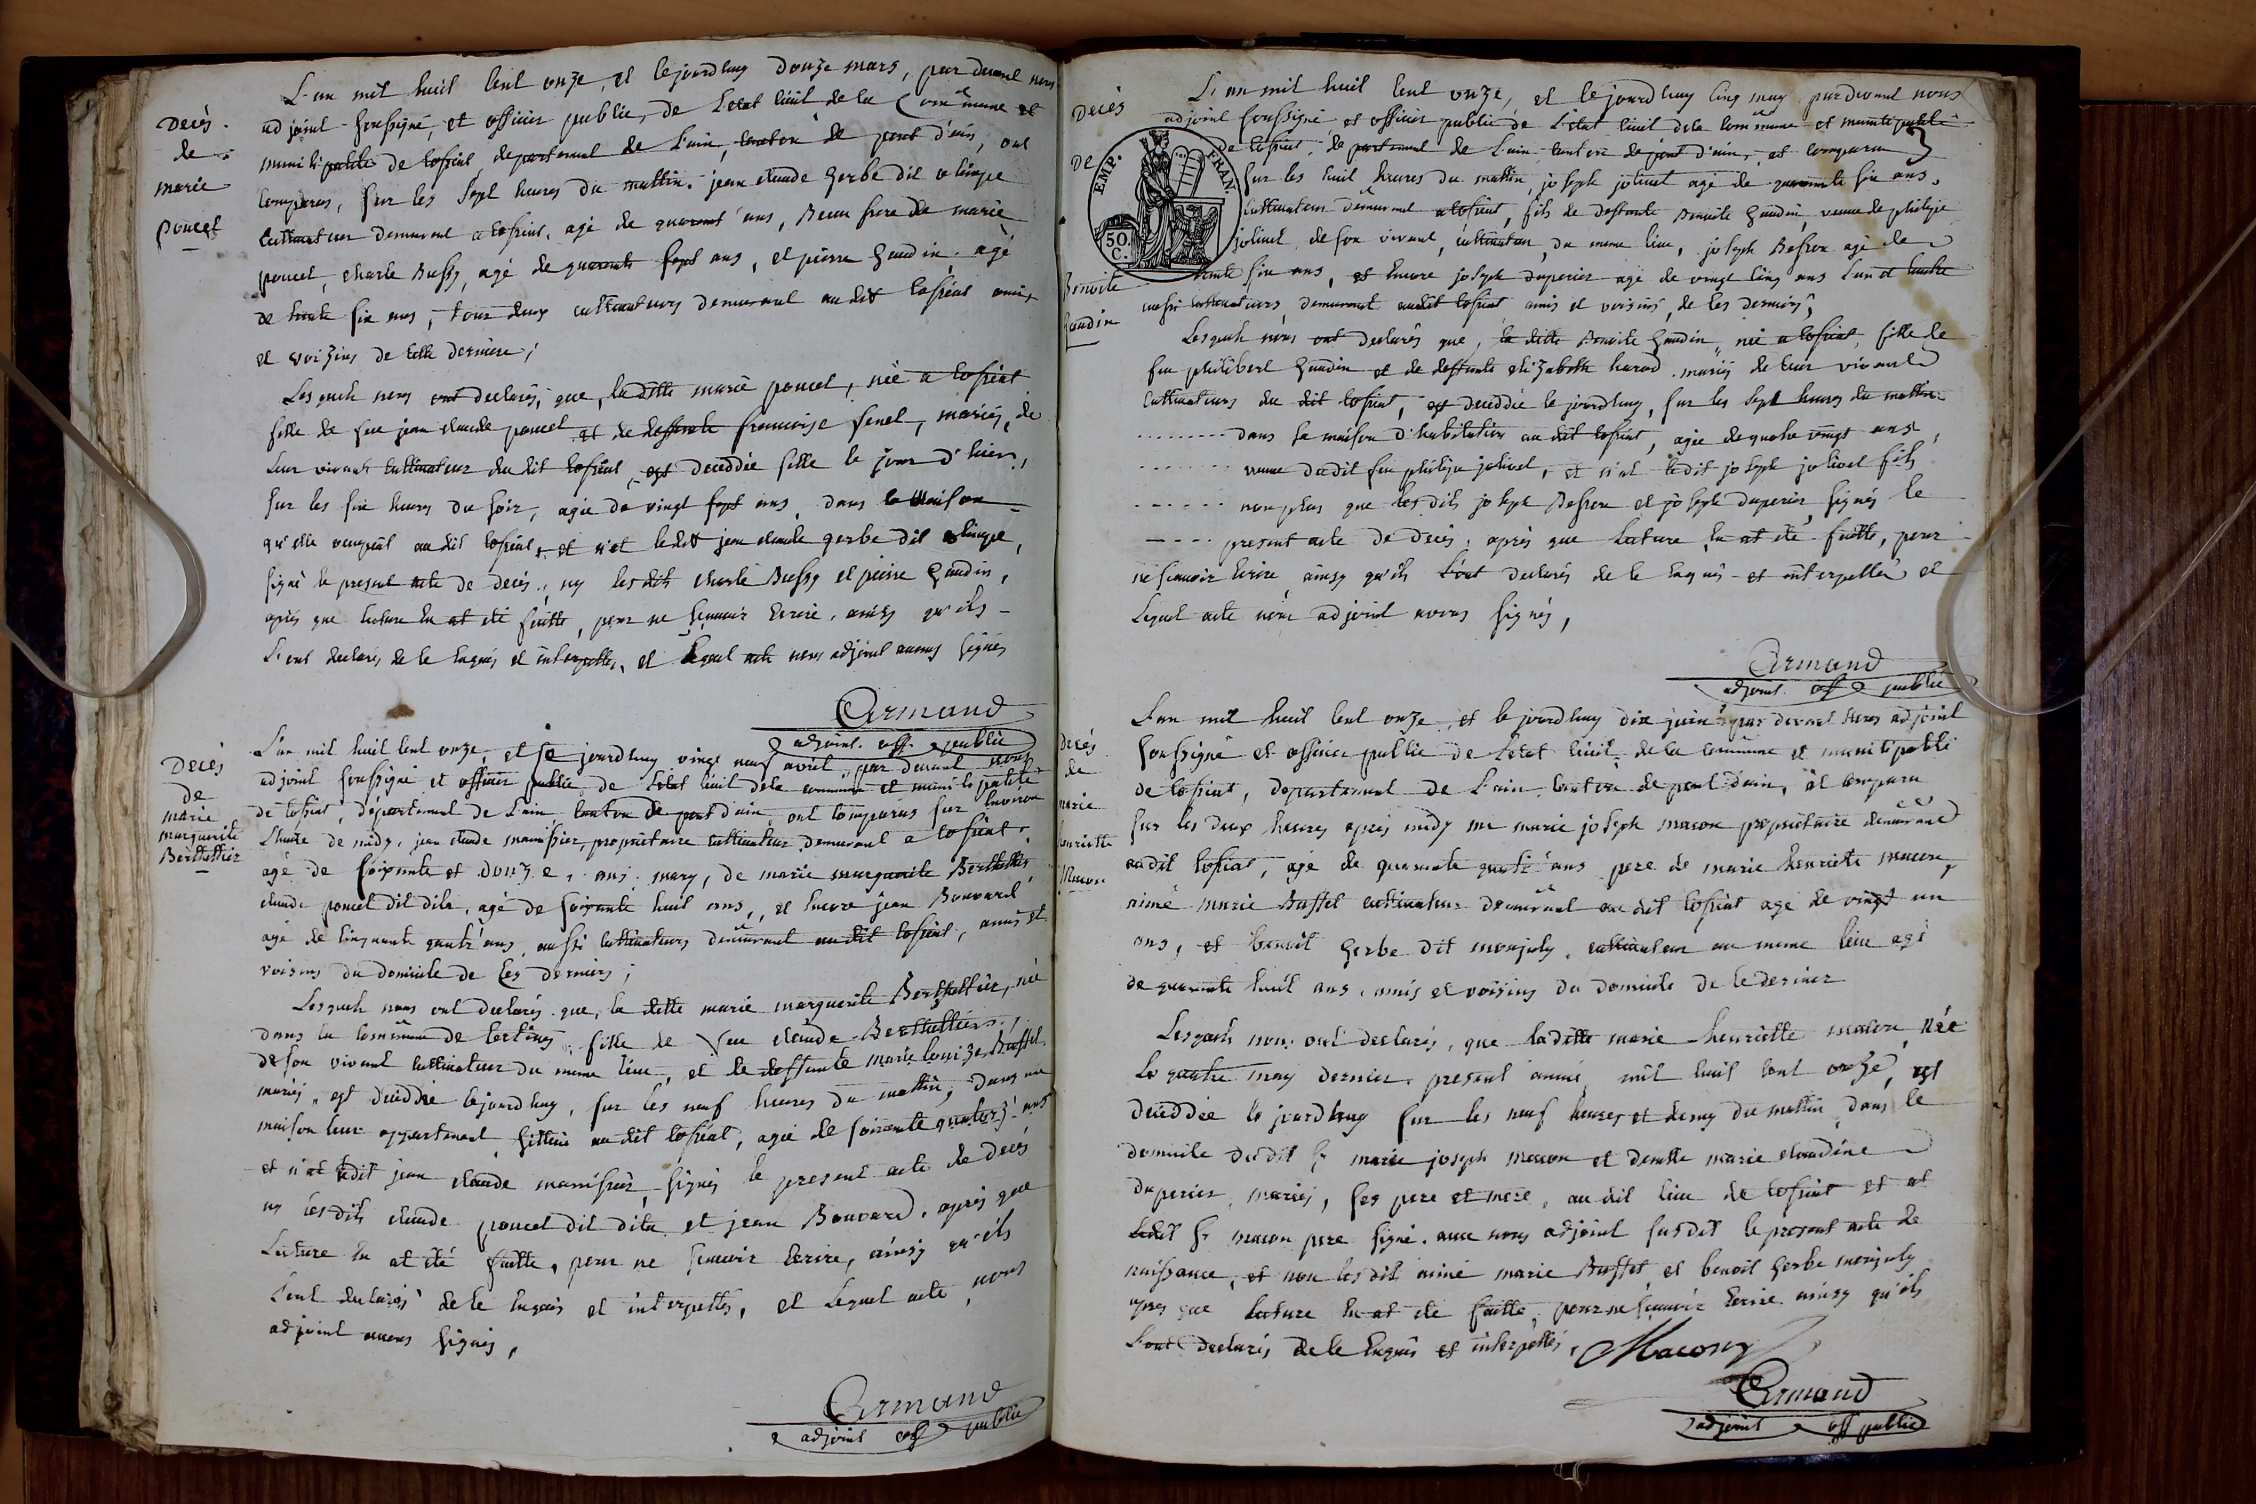 Decès
de
marie
poncet
L'an mil huit cent onze, et le jourd huy douze mars, par devant nous
adjoint soussigné, et officier public, de L'etat civil de la Commune et
municipalité de Cosiat, departement de L'ain, canton de pont d'ain, ont
comparus, sur les sept heures du mattin. jean claude gerbe dit
cultivateur demeurant a Cosiat, agé de quarant' ans, Beau frere de marie
poncet, charle Bussy, agé de quarante sept ans, et pierre gaudin, agé
de trente six ans, tous deux cultivateurs demeurant au dit Cosiat amis
et voizins de cette derniere;
Lesquels nous ont declarés, que, la ditte marie poncet, née a Cosiat
fille de feu jean claude poncet et de deffunte francoise fenet, mariés, de
leur vivant cultivateur du dit Cosiat, est deceddée fille le jour d'hier,
sur les six heures du soir, agée de vingt sept ans, dans la maison
qu'elle occupait au dit Cosiat, et n'at ledit jean claude gerbe dit
signé le present acte de decès, ny lesdits charle Bussy et pierre gaudin,
après que lecture en at été faitte, pour ne scavoir Ecrire, ainsy qu'ils
L'ont declarés de ce Enquis et interpellés, et Lequel acte nous adjoint avons signés
Armand
adjoint off. public
Decès
de
marie
marguerite
Berthettier
L'an mil huit cent onze, et le jourd huy vingt neuf avril, par devant nous
adjoint soussigné et officier public de L'etat civil dela commune et municipalité
de Cosiat, departement de L'ain, canton de pont d'ain, ont comparus sur Environ
L'heure de midy, jean claude manissier, proprietaire cultivateur demeurant a Cosiat,
agé de soixante et douze, ans, mary, de marie marguerite Berthettier,
claude poncet dit dila, agé de soixante huit ans, et Encore jean Bouvard
agé de cinquante quatr'ans, aussi cultivateurs demeurant au dit Cosiat, amis et
voisins du domicile de Ces derniers;
Lesquels nous ont declarés que, la ditte marie marguerite Berthettier, née
dans la commune de Certines, fille de feu claude Berthettier,
de son vivant cultivateur du meme lieu, et de deffunte marie louize Buffet
mariés, est deceddée le jourd huy, sur les neuf heures du mattin, dans une
maison leur appartenant sittuée au dit Cosiat, agée de soixante quatorz' ans
et n'at ledit jean claude manissier, signés le present acte de decès
ny lesdits claude poncet dit dila et jean Bouvard, après que
Lecture en at été faitte, pour ne scavoir Ecrire, ainsy qu'ils
L'ont declarés de ce Enquis et interpellés, et Lequel acte nous
adjoint avons signés,
Armand
adjoint off public
Decès
De
Benoite
gaudin
EMP. FRAN.
50. C.
L'an mil huit cent onze, et le jourd huy cinq may par devant nous
adjoint soussigné et officier public de L'etat civil dela commune et municipalité
de Cosiat, departement de L'ain canton de pont d'ain, et comparu
sur les huit heures du mattin, joseph jolivet agé de quarante six ans,
Cultivateur demeurant a Cosiat, fils de deffunte Benoite gaudin, veuve de philipe
jolivet, de son vivant, cultivateur, du meme lieu, joseph Besson agé de
trente six ans, et Encore joseph duperier agé de vingt cinq ans L'un et lautre
aussi cultivateurs, demeurant audit Cosiat amis et voisins, de Ces derniers,
Lesquels nous ont declarés que, la ditte Benoite gaudin, née a Cosiat, fille de
feu philibert gaudin et de deffunte elizabeth harod, mariés de leur vivant
Cultivateurs du dit Cosiat, est deceddée le jourd huy, sur les sept heures du mattin
dans sa maison d'habitation au dit Cosiat, agée de quatre vingt ans,
veuve dudit feu philipe jolivet, et n'at ledit joseph jolivet fils
non plus que les dits joseph Besson et joseph duperier, signés le
present acte de decès, après que Lecture, En at été faitte, pour
ne scavoir Ecrire, ainsy qu'ils L'ont declarés de ce Enquis et interpellés et
Lequel acte nous adjoint avons signés,
Armand
adjoint off public
Decès
de
marie
henriette
Macon
L'an mil huit cent onze, et le jourd huy dix juin, par devant nous adjoint
soussigné et officier public de L'etat civil de la commune et municipalité
de Cosiat, departement de L'ain canton de pont d'ain, at comparu
sur les deux heures après midy mr marie joseph macon proprietaire demeurant
audit Cosiat, agé de quarante quatr' ans pere de marie henriette macon,
aimé marie Buffet cultivateur demeurant au dit Cosiat agé de vingt un
ans, et benoit gerbe dit monjoly, cultivateur au meme lieu agé
de quarante huit ans, amis et voisins du domicile de ce dernier
Lesquels nous ont declarés, que ladite marie henriette macon, née
Le quatre may dernier, present année mil huit cent onze, est
deceddée le jourd huy sur les neuf heures et demy du mattin dans le
domicile dudit sr marie joseph macon et demlle marie claudine
duperier, mariés, ses pere et mere, au dit lieu de Cosiat et at
Ledit sr macon pere signé, avec nous adjoint susdit le present acte de
naissance, et non les dit aimé marie Buffet, et benoit gerbe monjoly
après que Lecture En at été faitte, pour ne scavoir Ecrire ainsy qu'ils
L'ont declarés de ce Enquis et interpellés,
Macon
Armand
adjoint off public